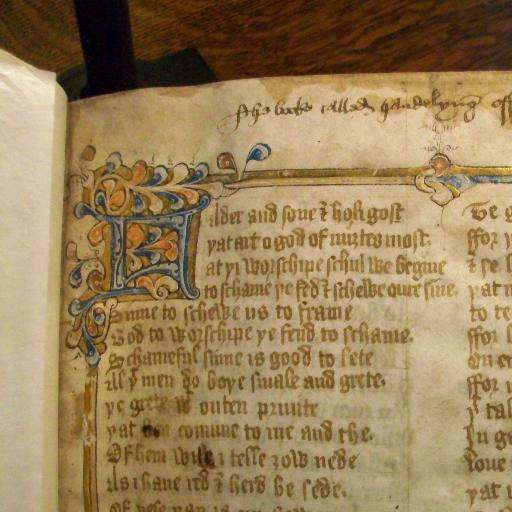 The boke called handelyng off
Fader and sone & holi gost
yat art o god of mirtes most.
at yi worschipe schul we begine
to schame ye fed & schewe oure sine.
Sinne to schewe us to frame
God to worschipe ye fend to schame.
Schameful sinne is good to lete
Al yt men do boye smale and grete.
ye grete w outen priuite
yat comune to me and the.
Of hem wile i telle zow nede
Als i haue red & herd be sede.
ye g
ffor y
& se
yat
to te
ffor
On e
ffor
yt tal
In g
loue
yat i